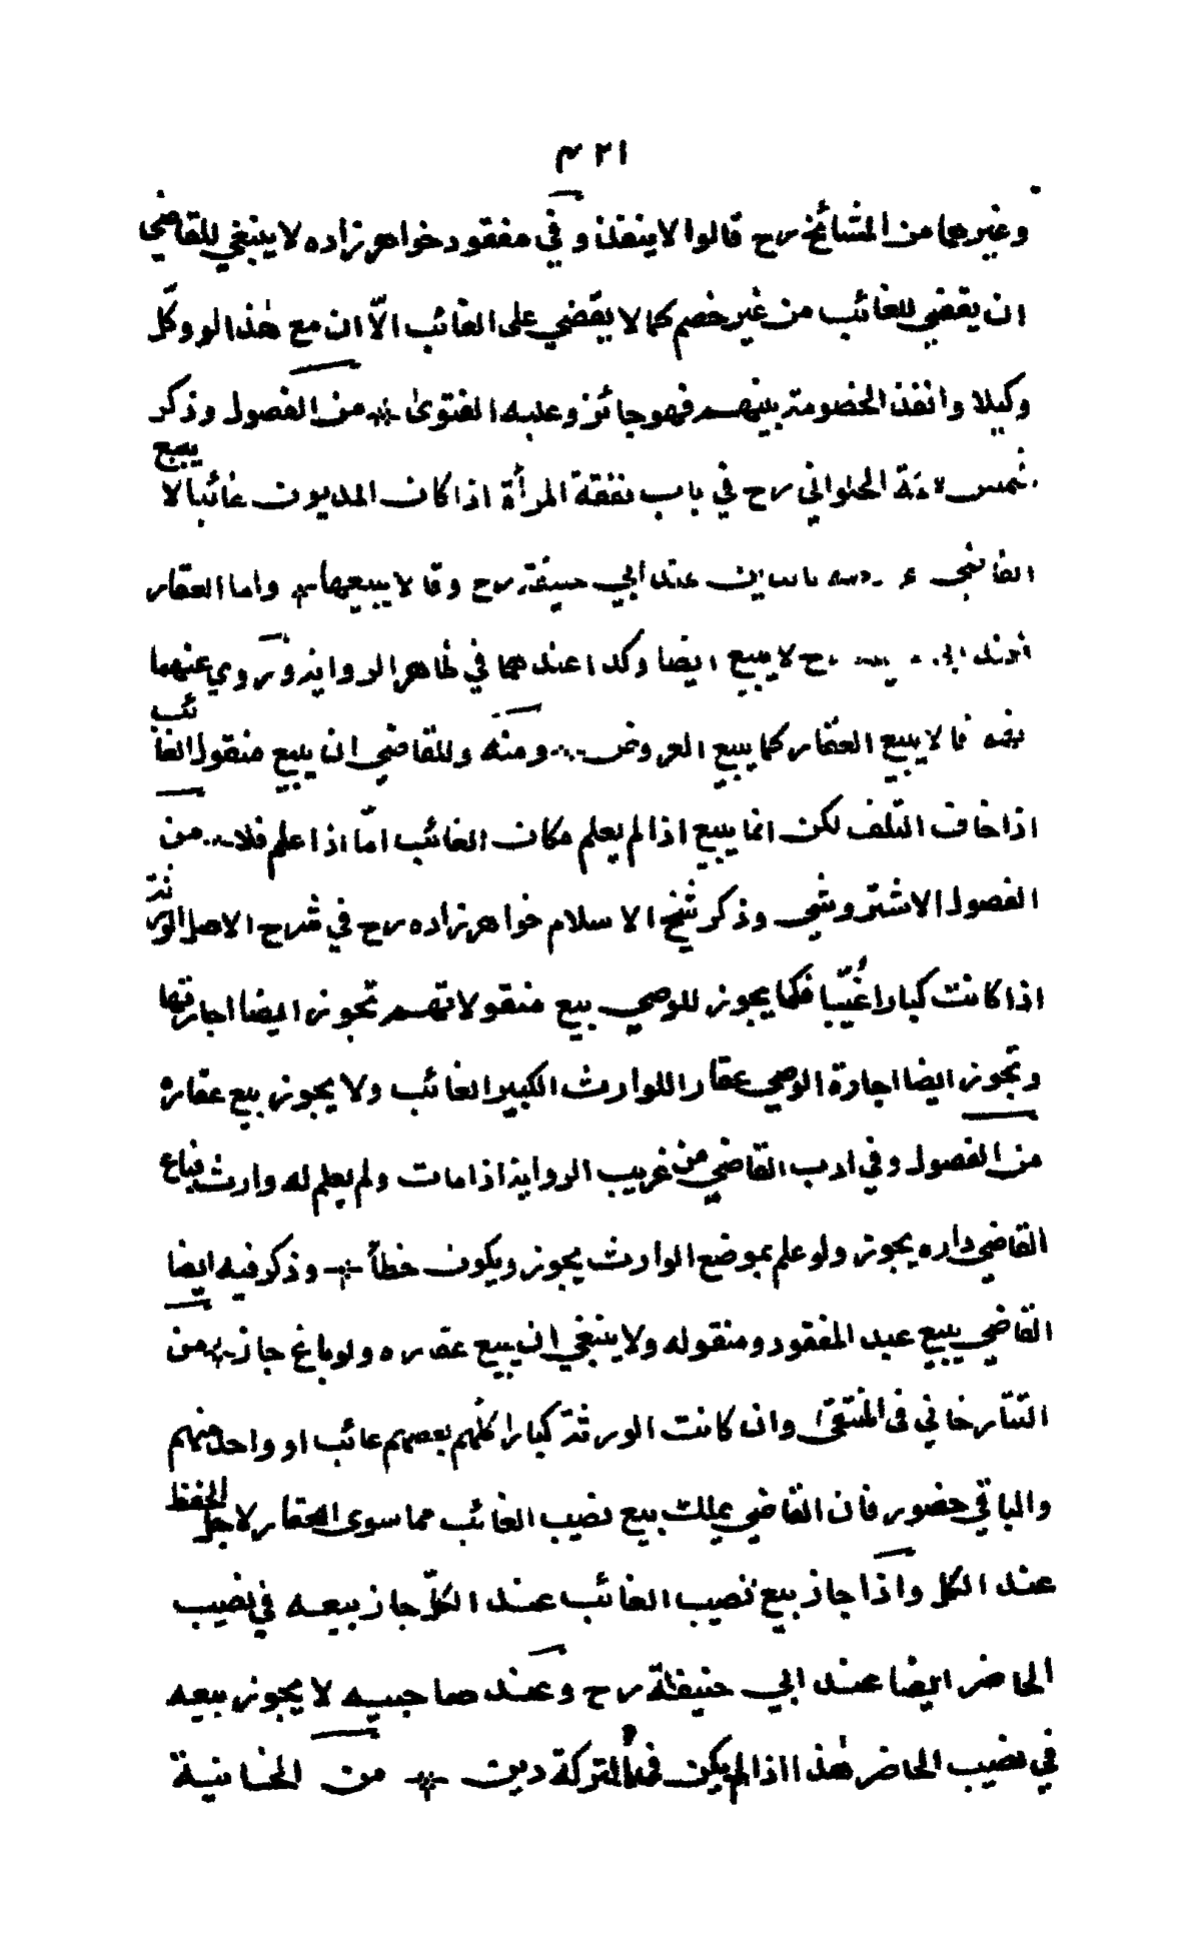 ٣٢١
وغيرهما من المشائخ رح قالوا لا ينفذ وفي مفقود خواهر زاده لا ينبغي للقاضي
ان يقضي للغائب من غير خصم كما لا يقضي على الغائب الّا ان مع هذا لو وكّل
وكيلا وانفذ الخصومة بينهم فهو جائز وعليه الفتوى من الفصول وذكر
شمس الحلواني رح في باب نفقة المرأة اذا كان المديون غائبا لا يبيع
القاضي عند ابي حنيفة رح وقالا يبيعها واما العقار
رح لا يبيع ايضا وكذا عندهما في ظاهر الرواية وروي عنهما
لا يبيع العقار كما يبيع العروض ومنه وللقاضي ان يبيع منقول الغائب
اذا خاف التلف لكن انما يبيع اذا لم يعلم مكان الغائب امّا اذا علم فلا من
الفصول الاشتروشي وذكر شيخ الاسلام خواهر زاده رح في شرح الاصل الورثة
اذا كانت كبارا غُيّبا فكما يجوز للوصي بيع منقولاتهم تجوز ايضا اجارتها
وتجوز ايضا اجارة الوصي عقارا للوارث الكبير الغائب ولا يجوز بيع عقاره
من الفصول وفي ادب القاضي من غريب الرواية اذا مات ولم يعلم له وارث فباع
القاضي داره يجوز ولو علم بموضع الوارث يجوز ويكون خطأ وذكر فيه ايضا
القاضي يبيع عبد المفقود ومنقوله ولا ينبغي ان يبيع عقاره ولو باع جاز من
التتارخاني في المنتقى وان كانت الورثة كبارا كلهم بعضهم غائب او واحد منهم
والباقي حضور فان القاضي يملك بيع نصيب الغائب مما سوى العقار لاجل الحفظ
عند الكل واذا جاز بيع نصيب الغائب عند الكلّ جاز بيعه في نصيب
الحاضر ايضا عند ابي حنيفة رح وعند صاحبيه لا يجوز بيعه
في نصيب الحاضر هذا اذا لم يكن في التركة دين من الخانية